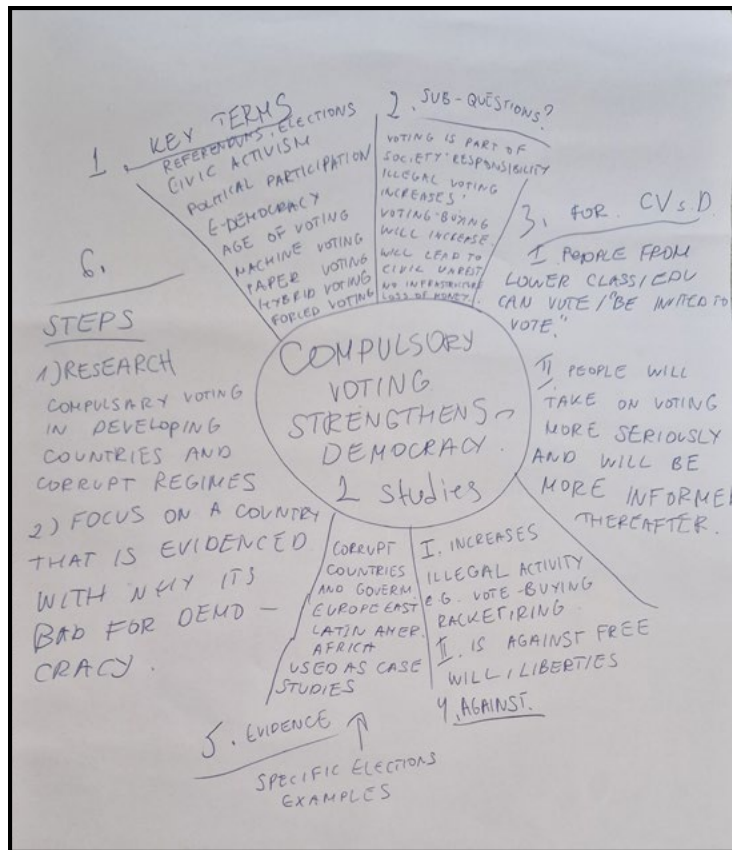 1. KEY TERMS
REFERENDUMS, ELECTIONS
CIVIC ACTIVISM
POLITICAL PARTICIPATION
E-DEMOCRACY
AGE OF VOTING
MACHINE VOTING
PAPER VOTING
HYBRID VOTING
FORCED VOTING
2. SUB-QUESTIONS?
VOTING IS PART OF
SOCIETY RESPONSIBILITY
ILLEGAL VOTING
INCREASES
VOTING-BUYING
WILL INCREASE
WILL LEAD TO
CIVIL UNREST
NO INFRASTRUCTURE
LOSS OF MONEY.
3. FOR CV s. D.
I PEOPLE FROM
LOWER CLASS/EDU
CAN VOTE/"BE INVITED TO
VOTE."
II PEOPLE WILL
TAKE ON VOTING
MORE SERIOUSLY
AND WILL BE
MORE INFORME
THEREAFTER.
COMPULSORY
VOTING
STRENGTHENS
DEMOCRACY.
2 studies
I. INCREASES
ILLEGAL ACTIVITY
e.G. VOTE-BUYING
RACKETIRING.
II. IS AGAINST FREE
WILL/LIBERTIES
4. AGAINST.
CORRUPT
COUNTRIES
AND GOVERM.
EUROPE EAST
LATIN AMER.
AFRICA
USED AS CASE
STUDIES
5. EVIDENCE ↑
SPECIFIC ELECTIONS
EXAMPLES
6.
STEPS
1) RESEARCH
COMPULSARY VOTING
IN DEVELOPING
COUNTRIES AND
CORRUPT REGIMES
2) FOCUS ON A COUNTRY
THAT IS EVIDENCED
WITH WHY ITS
BAD FOR DEMO-
CRACY.